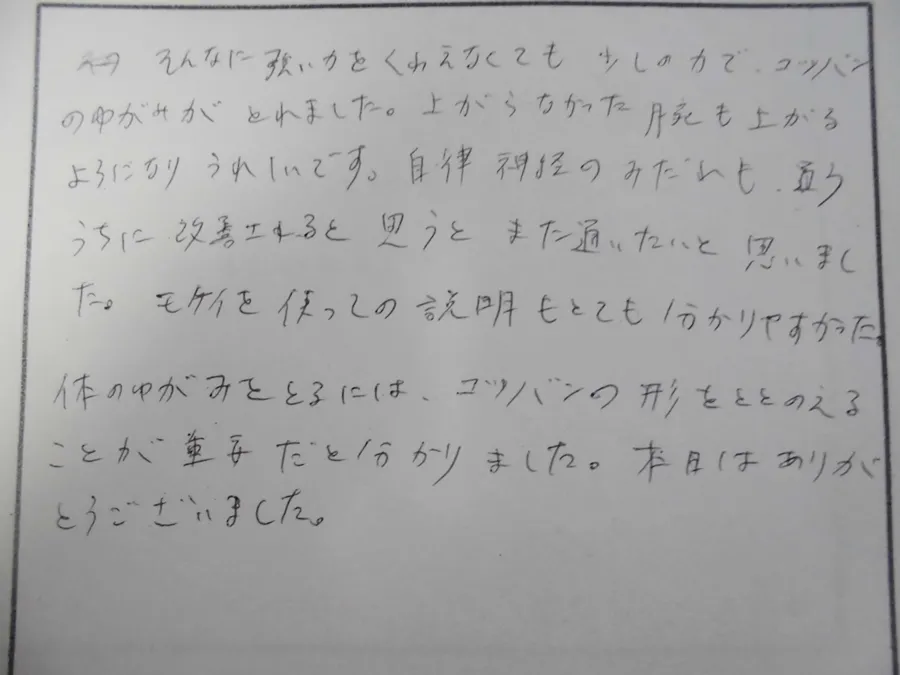 そんなに強い力をくわえなくても 少しの力で、コツバン
のゆがみが とれました。上がらなかった 腕も上がる
ようになり うれしいです。自律神経のみだれも、通う
うちに改善されると 思うと また通いたいと 思いまし
た。モケイを使っての説明もとても分かりやすかった。
体のゆがみをとるには、コツバンの形をととのえる
ことが重要だと分かりました。本日はありが
とうございました。